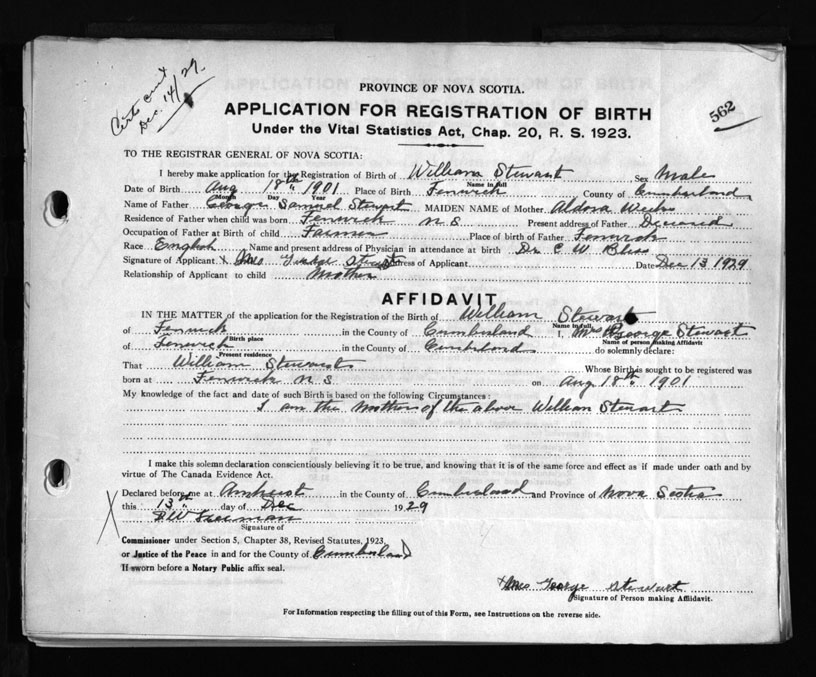 Certs emit
Dec. 14/29.
562
PROVINCE OF NOVA SCOTIA.
APPLICATION FOR REGISTRATION OF BIRTH
Under the Vital Statistics Act, Chap. 20, R. S. 1923.
TO THE REGISTRAR GENERAL OF NOVA SCOTIA:
I hereby make application for the Registration of Birth of William Stewart Sex Male
Name in full
Date of Birth Aug 18th 1901 Place of Birth Fenwick County of Cumberland
Month Day Year
Name of Father George Samuel Stewart MAIDEN NAME of Mother Aldora Weeks
Residence of Father when child was born Fenwick N S Present address of Father Deceased
Occupation of Father at Birth of child Farmer Place of birth of Father Fenwick
Race English Name and present address of Physician in attendance at birth Dr. C W. Bliss
Signature of Applicant X Mrs George Stewart Address of Applicant Date Dec 13 1929
Relationship of Applicant to child Mother
AFFIDAVIT
IN THE MATTER of the application for the Registration of the Birth of William Stewart
Name in full
of Fenwick in the County of Cumberland I, Mrs George Stewart
Birth place Name of person making Affidavit
of Fenwick in the County of Cumberland do solemnly declare:
Present residence
That William Stewart Whose Birth is sought to be registered was
born at Fenwick N S on Aug 18th 1901
My knowledge of the fact and date of such Birth is based on the following Circumstances:
I am the Mother of the above William Stewart
I make this solemn declaration conscientiously believing it to be true, and knowing that it is of the same force and effect as if made under oath and by
virtue of The Canada Evidence Act.
Declared before me at Amherst in the County of Cumberland and Province of Nova Scotia
this 13th day of Dec 1929
Freeman
Signature of
Commissioner under Section 5, Chapter 38, Revised Statutes, 1923
or Justice of the Peace in and for the County of Cumberland
If sworn before a Notary Public affix seal.
X Mrs George Stewart
Signature of Person making Affidavit.
For Information respecting the filling out of this Form, see Instructions on the reverse side.